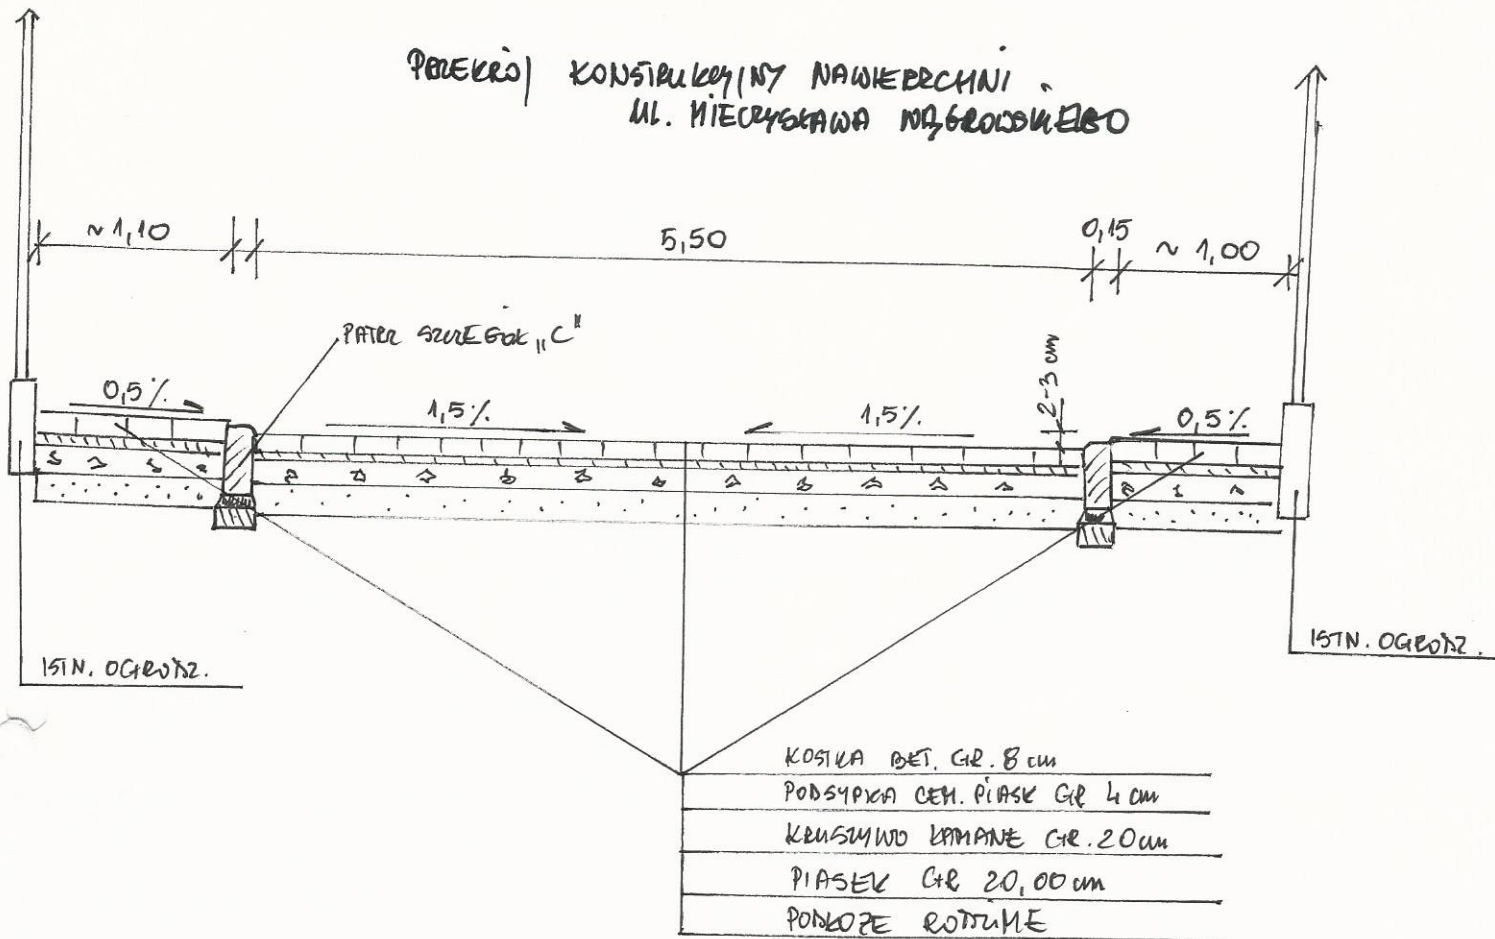 PRZEKRÓJ KONSTRUKCYJNY NAWIERZCHNI
UL. MIECZYSŁAWA WĄGROWSKIEGO
~1,10
5,50
0,15
~ 1,00
PATRZ SZCZEGÓŁ „C"
2-3 cm
0,5%
1,5%
1,5%
0,5%
ISTN. OGRODZ.
ISTN. OGRODZ.
KOSTKA BET. GR. 8 cm
PODSYPKA CEM. PIASK GR 4 cm
KRUSZYWO ŁAMANE GR. 20 cm
PIASEK GR 20,00 cm
PODŁOŻE RODZIME